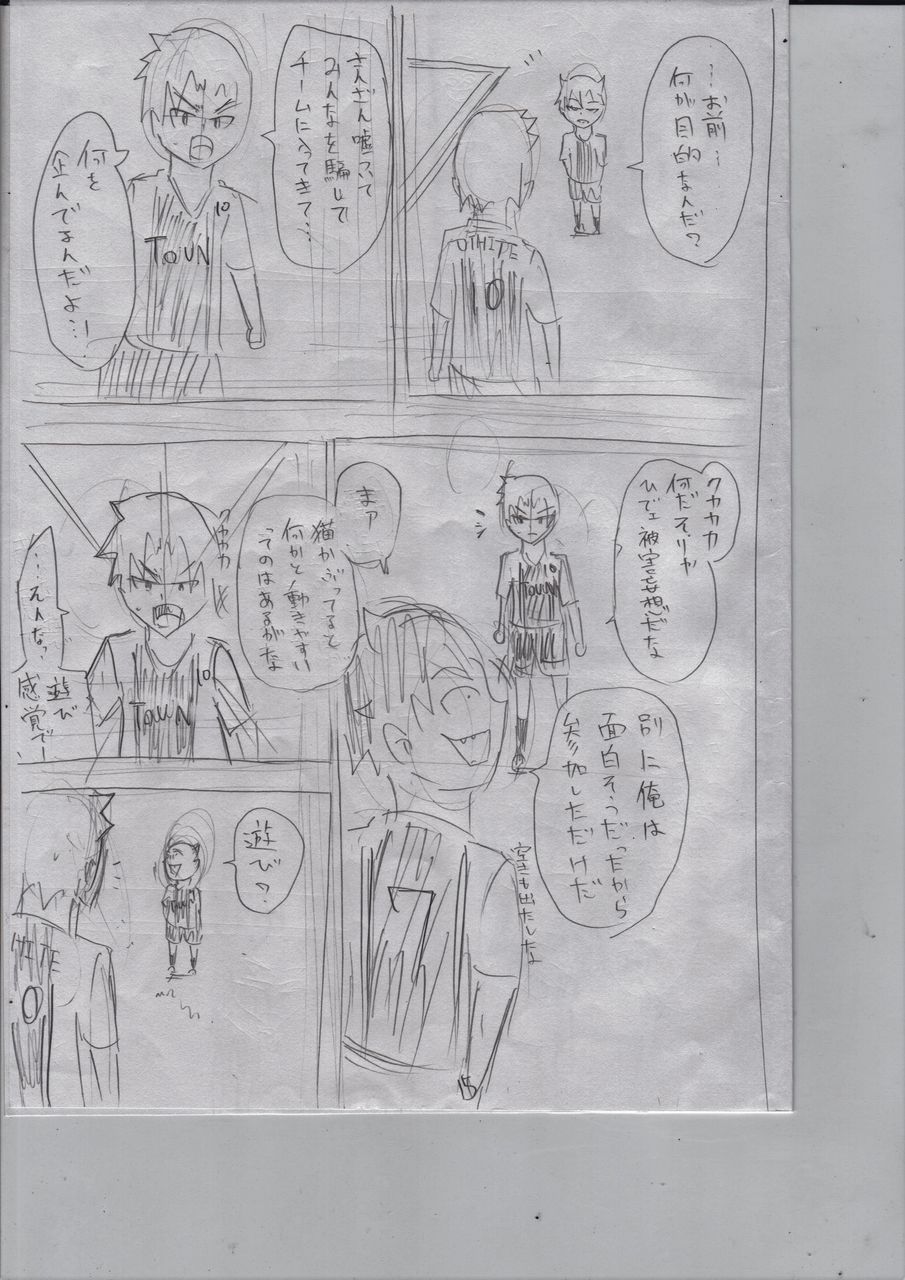 …お前…
何が目的なんだ？
OTHITE
0
さんざん嘘ついて
みんなを騙して
チームに入ってきて…
何を
企んでなんだよ…！
10
TOUN
クカカカ
何だそりゃ
ひでェ被害妄想だな
10
TOUN
別に俺は
面白そうだったから
参加しただけだ
空きも出たしな
まァ
猫かぶってると
何かと動きやすい
ってのはあるがな
7
15
クカカカ
…そんなっ、遊び
感覚でー
10
TOWN
遊び？
0